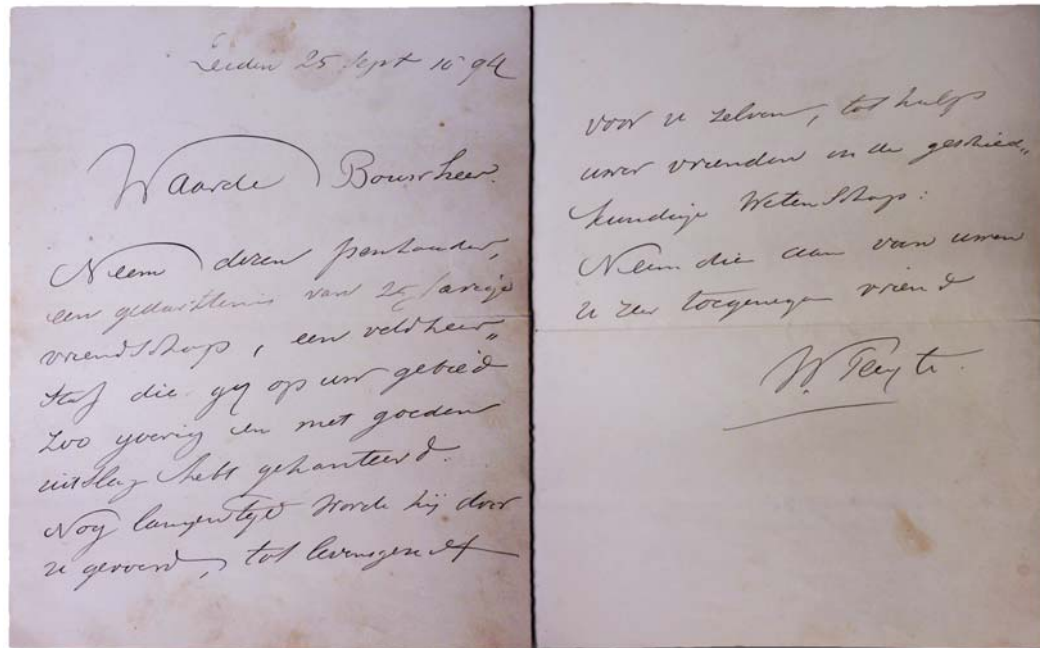 Leiden 25 Sept 1894
Waarde Bouwheer.
Neem dezen penhouder,
een gedachtenis van 25 jarige
vriendschap, een veldheer„
staf die gij op uw gebied
zoo yverig en met goeden
uitslag hebt gehanteerd.
Nog langentijd worde hij door
u gevoerd, tot levensgenot
voor u zelven, tot hulp
uwer vrienden in de geschied„
kundige Wetenschap:
Neem die aan van uwen
u zeer toegenegen vriend
W. Pleyte.